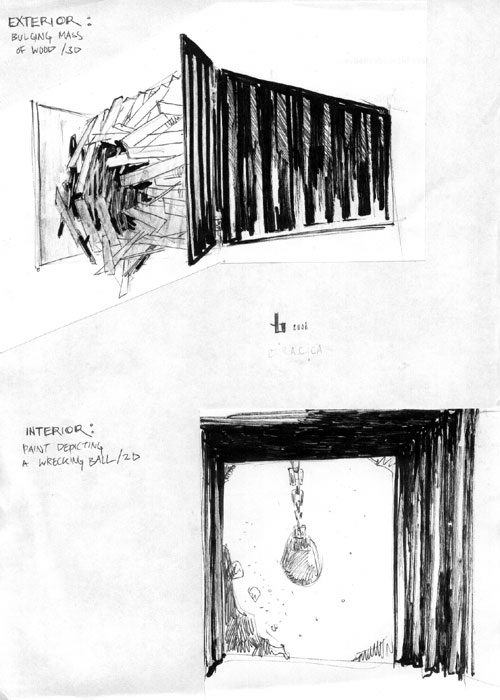 EXTERIOR:
BULGING MASS
OF WOOD /3D
2006
INTERIOR:
PAINT DEPICTING
A WRECKING BALL/2D